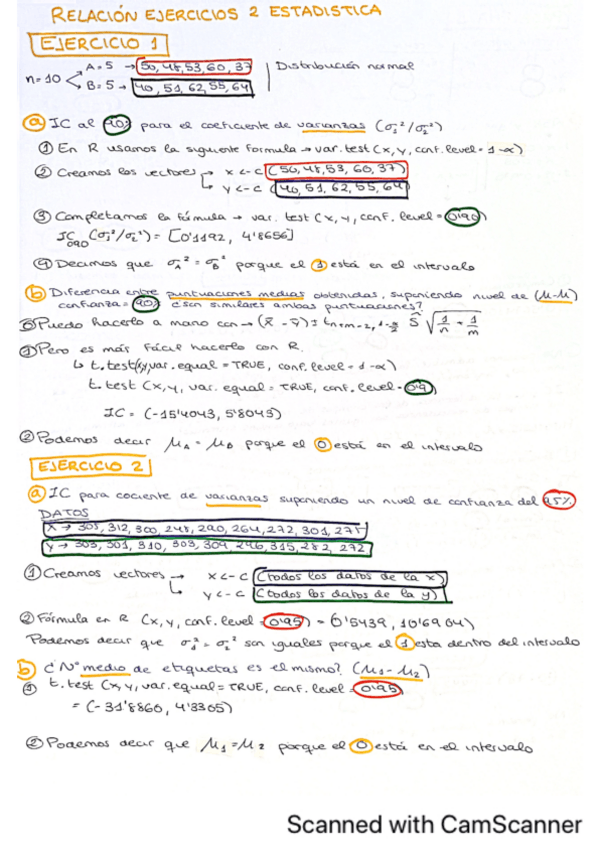 RELACIÓN EJERCICIOS 2 ESTADISTICA
EJERCICIO 1
n=10 A=5 → 50, 48, 53, 60, 37 Distribución normal
B=5 → 40, 51, 62, 55, 64
a IC al 90% para el coeficiente de varianzas (σ₁²/σ₂²)
① En R usamos la siguiente formula → var.test(x, y, conf.level = 1-α)
② Creamos los vectores → x <- c(50, 48, 53, 60, 37)
→ y <- c(40, 51, 62, 55, 64)
③ Completamos la fórmula → var. test (x, y, conf. level = 0'90)
IC₀₉₀ (σ₁²/σ₂²) = [0'1192, 4'8656]
④ Decimos que σA² = σB² porque el 1 está en el intervalo
b Diferencia entre puntuaciones medias obtenidas, suponiendo nivel de (μ-μ)
confianza = 90% ¿son similares ambas puntuaciones?
⓪ Puedo hacerlo a mano con → (x̄ - ȳ) ± t n+m-2, 1-α/2 Ŝ √ 1/n + 1/m
① Pero es más fácil hacerlo con R.
↳ t.test(x,y,var.equal = TRUE, conf.level = 1-α)
t.test (x, y, var. equal = TRUE, conf. level = 0'9)
IC = (-15'4043, 5'8043)
② Podemos decir μA = μB porque el 0 está en el intervalo
EJERCICIO 2
a IC para cociente de varianzas suponiendo un nivel de confianza del 95%
DATOS
X → 303, 312, 300, 248, 290, 264, 272, 301, 275
Y → 303, 301, 310, 303, 304, 246, 315, 282, 272
① Creamos vectores → x <- c (todos los datos de la x)
→ y <- c (todos los datos de la y)
② Fórmula en R (x, y, conf. level = 0'95) = (0'5439, 10'6964)
Podemos decir que σ₁² = σ₂² son iguales porque el 1 esta dentro del intervalo
b ¿Nº medio de etiquetas es el mismo? (μ₁ - μ₂)
① t.test (x, y, var.equal = TRUE, conf. level = 0'95)
= (-31'8860, 4'3305)
② Podemos decir que μ₁ = μ₂ porque el 0 está en el intervalo
Scanned with CamScanner